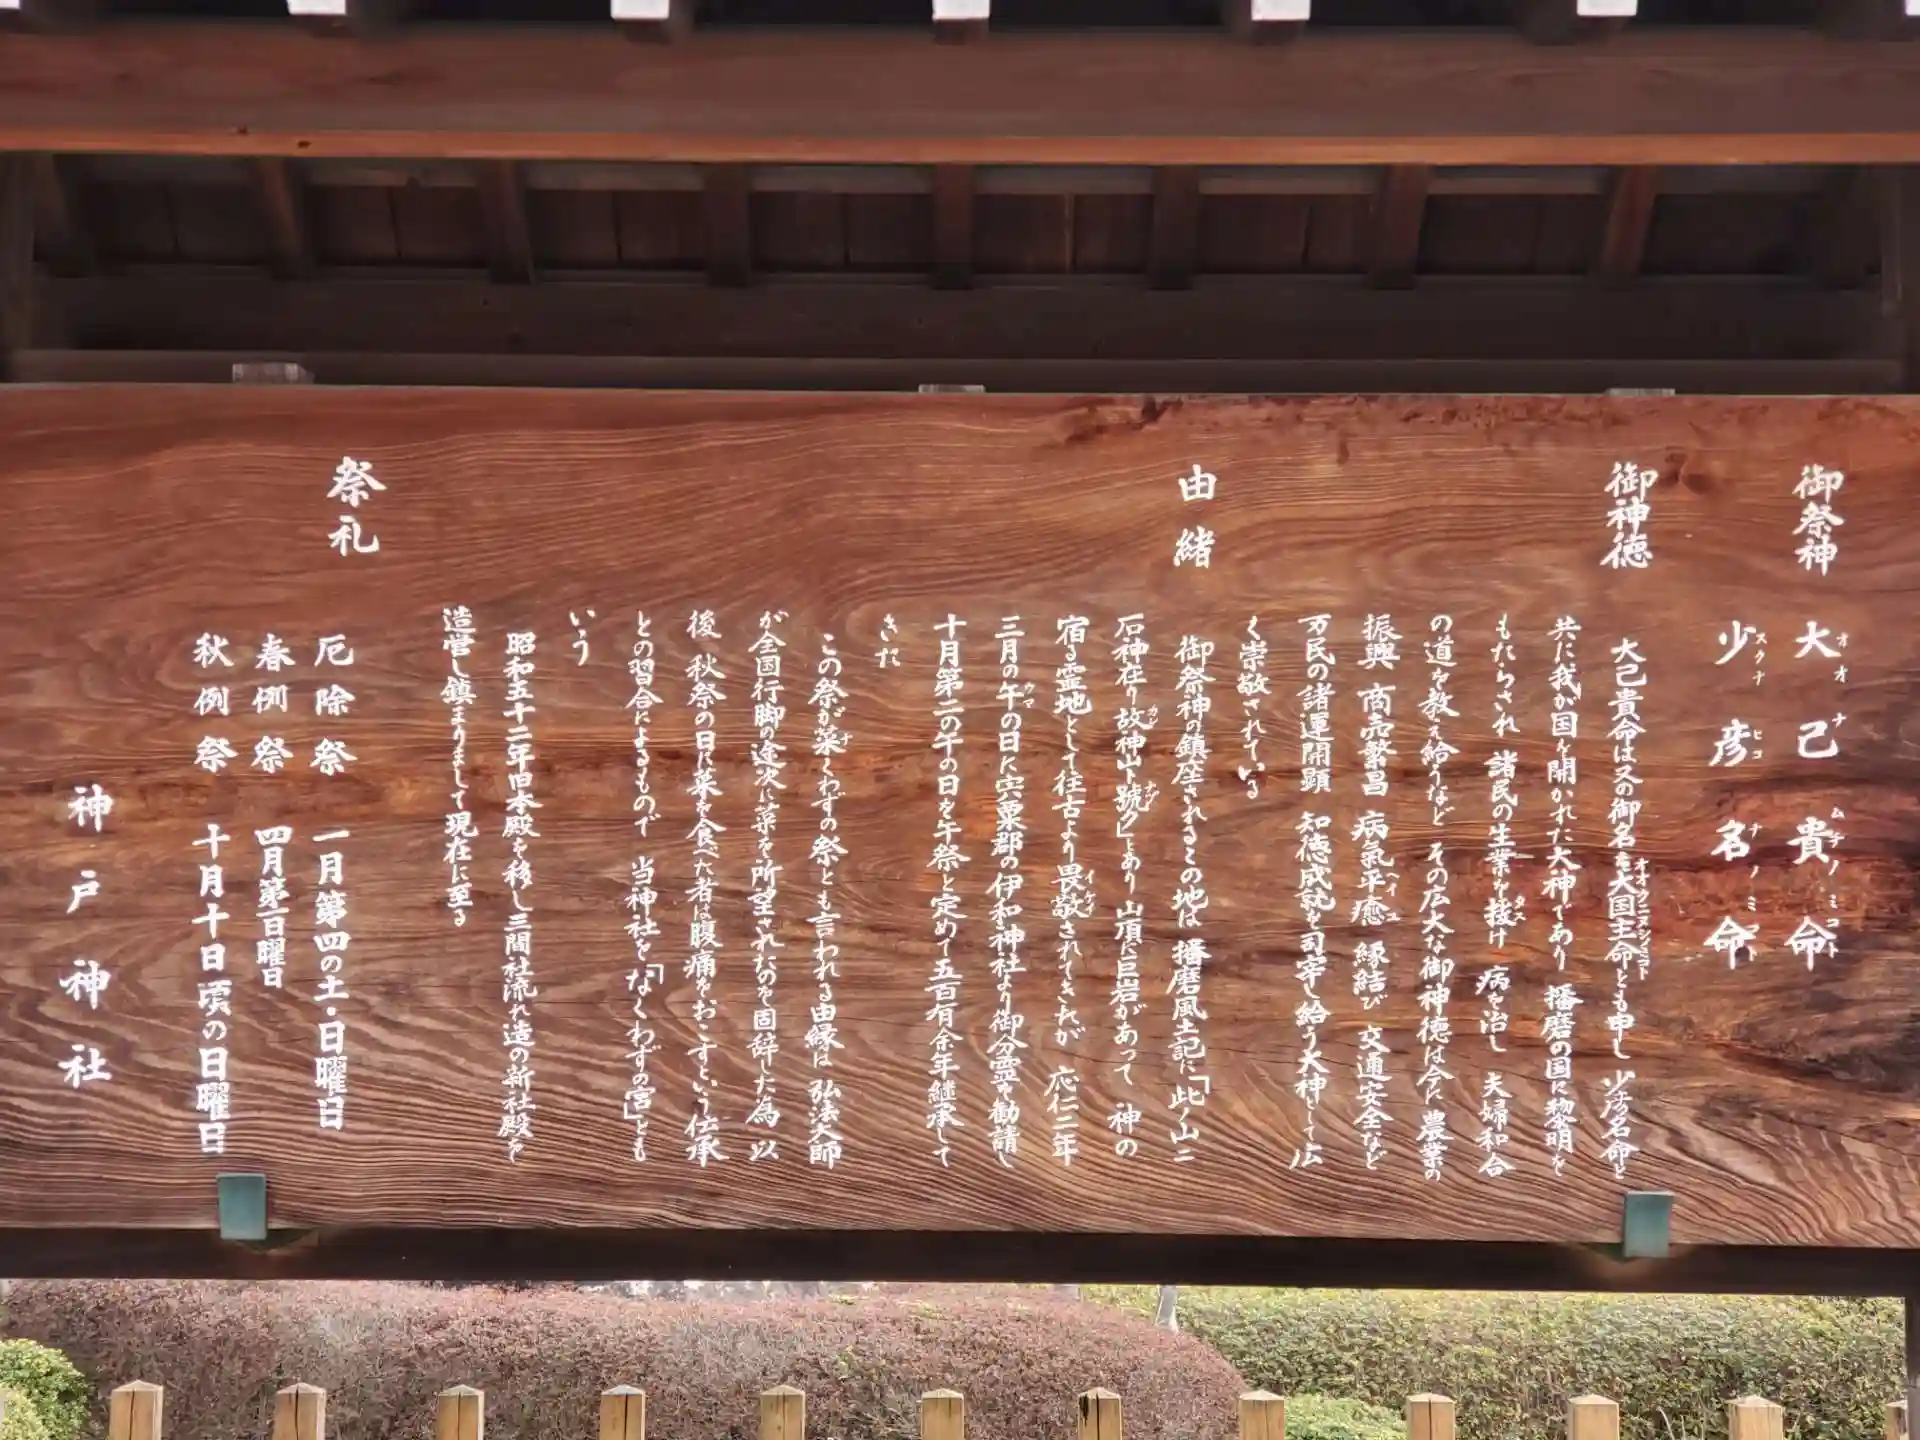 御祭神 大己貴命
オオ ナ ムチノミコト
少彦名命
スクナ ヒコ ナノミコト
御神徳
大己貴命は又の御名を大国主命とも申し 少彦名命と
オオクニヌシノミコト
共に我が国を開かれた大神であり 播磨の国に黎明を
もたらされ 諸民の生業を援け 病を治し 夫婦和合
タス
の道を教え給うなど その広大な御神徳は今に 農業の
振興 商売繁昌 病氣平癒 縁結び 交通安全など
ヘイユ
万民の諸運開顕 知徳成就を司宰し給う大神として広
く崇敬されている
由緒
御祭神の鎮座されるこの地は 播磨風土記に「此ノ山ニ
石神在り故神山ト號ク」とあり 山頂に巨岩があって 神の
カレ ナヅ
宿る霊地として往古より畏敬されてきたが 応仁二年
イケイ
三月の午の日に宍粟郡の伊和神社より御分霊を勧請し
ウマ
十月第二の午の日を午祭と定めて五百有余年継承して
きた
この祭が菜くわずの祭とも言われる由縁は 弘法大師
ナ
が全国行脚の途次に菜を所望されたのを固辞した為 以
後 秋祭の日に菜を食べた者は腹痛をおこすという伝承
との習合によるもので 当神社を「なくわずの宮」とも
いう
昭和五十二年旧本殿を移し三間社流れ造の新社殿を
造営し鎮まりまして現在に至る
祭礼
厄除祭 一月第四の土・日曜日
春例祭 四月第一日曜日
秋例祭 十月十日頃の日曜日
神戸神社